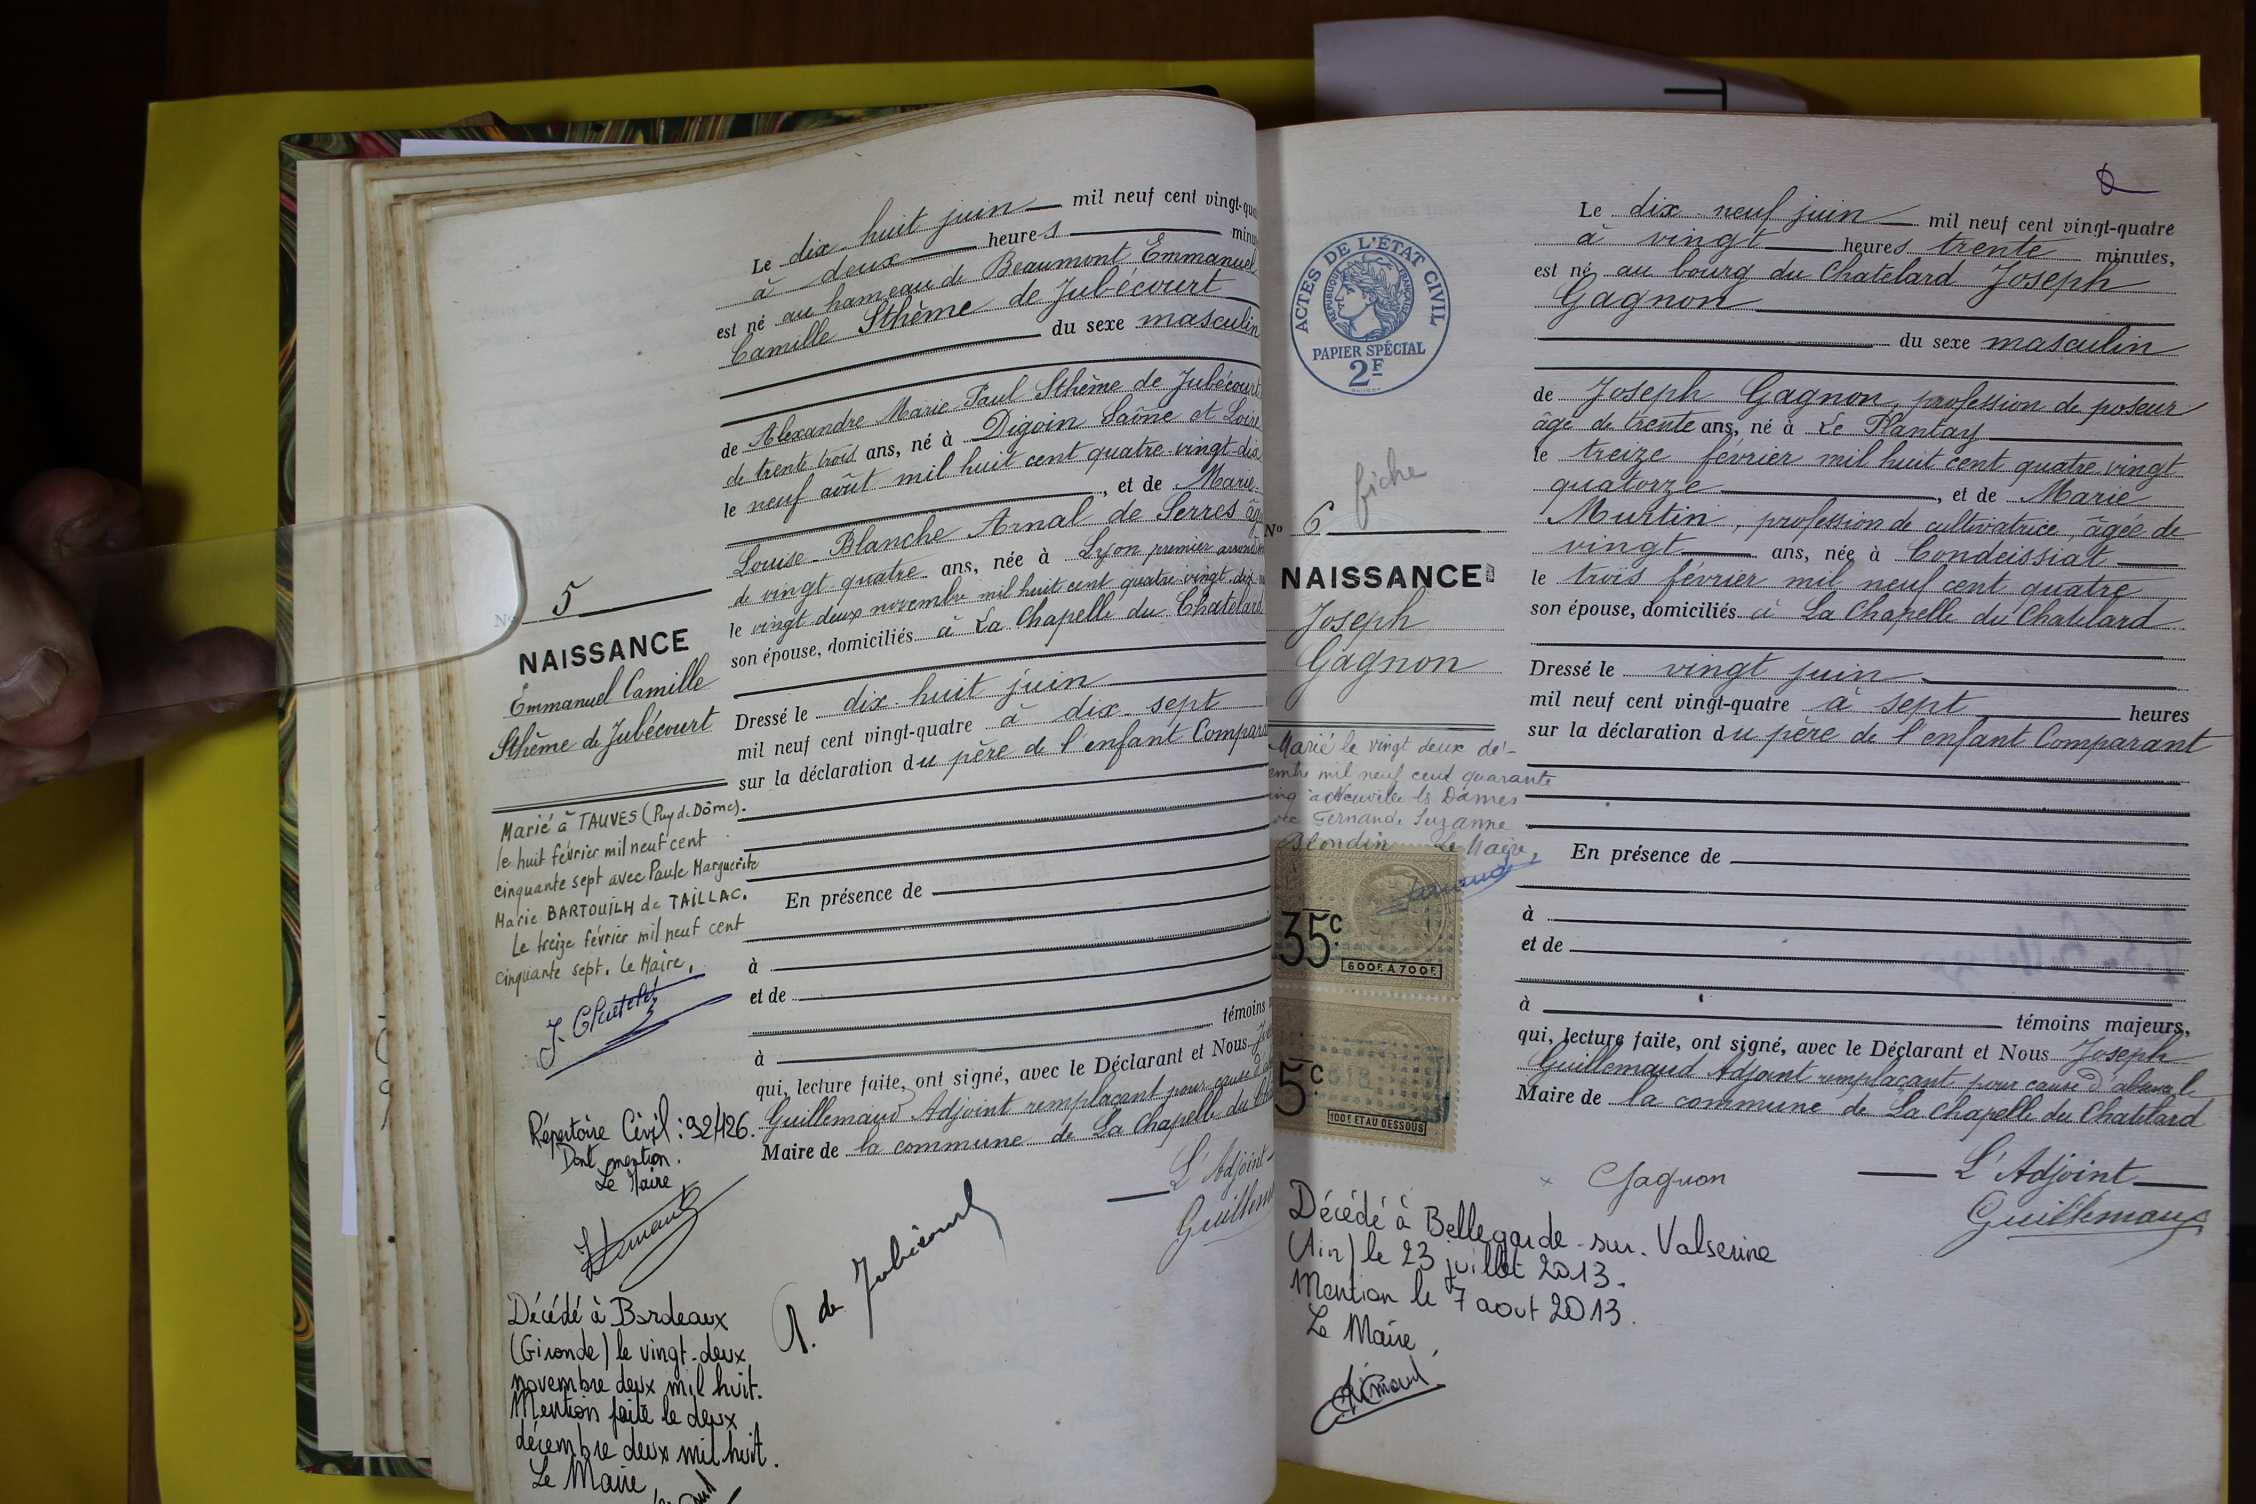 Le dix huit juin mil neuf cent vingt-qua
à deux heures minu
est né au hameau de Beaumont Emmanuel
Camille Sthème de Jubécourt
du sexe masculin
de Alexandre Marie Paul Sthème de Jubécourt
de trente trois ans, né à Digoin Saône et Loire
le neuf août mil huit cent quatre-vingt-dix
, et de Marie-
Louise Blanche Arnal de Serres âg
de vingt quatre ans, née à Lyon premier
le vingt deux novembre mil huit cent quatre vingt dix
son épouse, domiciliés à La Chapelle du Châtelard
Dressé le dix huit juin
mil neuf cent vingt-quatre à dix sept
sur la déclaration du père de l'enfant Compara
En présence de
à
et de
à témoins
qui, lecture faite, ont signé, avec le Déclarant et Nous
Guillemaud Adjoint remplaçant pour cause d'
Maire de la commune de La Chapelle du
L'Adjoint
Guillem
A. de Jubécourt
N° 5
NAISSANCE
Emmanuel Camille
Sthème de Jubécourt
Marié à TAUVES (Puy de Dôme).
le huit février mil neuf cent
cinquante sept avec Paule Marguerite
Marie BARTOUILH de TAILLAC.
Le treize février mil neuf cent
cinquante sept. Le Maire,
Répertoire Civil : 92/426.
Dont mention.
Le Maire
Décédé à Bordeaux
(Gironde) le vingt-deux
novembre deux mil huit.
Mention faite le deux
décembre deux mil huit.
Le Maire
ACTES DE L'ÉTAT CIVIL
RÉPUBLIQUE FRANÇAISE
PAPIER SPÉCIAL
2F
fiche
N° 6
NAISSANCE
Joseph
Gagnon
Marié le vingt deux dé-
embre mil neuf cent quarante
inq à Neuville les Dames
vec Fernande Suzanne
Blondin Le Maire,
35c
600F. A 700F.
5c
100F ET AU DESSOUS
Le dix neuf juin mil neuf cent vingt-quatre
à vingt heures trente minutes,
est né au bourg du Chatelard Joseph
Gagnon
du sexe masculin
de Joseph Gagnon, profession de poseur
âgé de trente ans, né à Le Plantay
le treize février mil huit cent quatre vingt
quatorze , et de Marie
Murtin, profession de cultivatrice, âgée de
vingt ans, née à Condeissiat
le trois février mil neuf cent quatre
son épouse, domiciliés à La Chapelle du Chatelard
Dressé le vingt juin
mil neuf cent vingt-quatre à sept heures
sur la déclaration du père de l'enfant Comparant
En présence de
à
et de
à témoins majeurs,
qui, lecture faite, ont signé, avec le Déclarant et Nous Joseph
Guillemaud Adjoint remplaçant pour cause d'absence le
Maire de la commune de La Chapelle du Chatelard
Gagnon L'Adjoint
Guillemaud
Décédé à Bellegarde-sur-Valserine
(Ain) le 23 juillet 2013.
Mention le 7 aout 2013.
Le Maire,